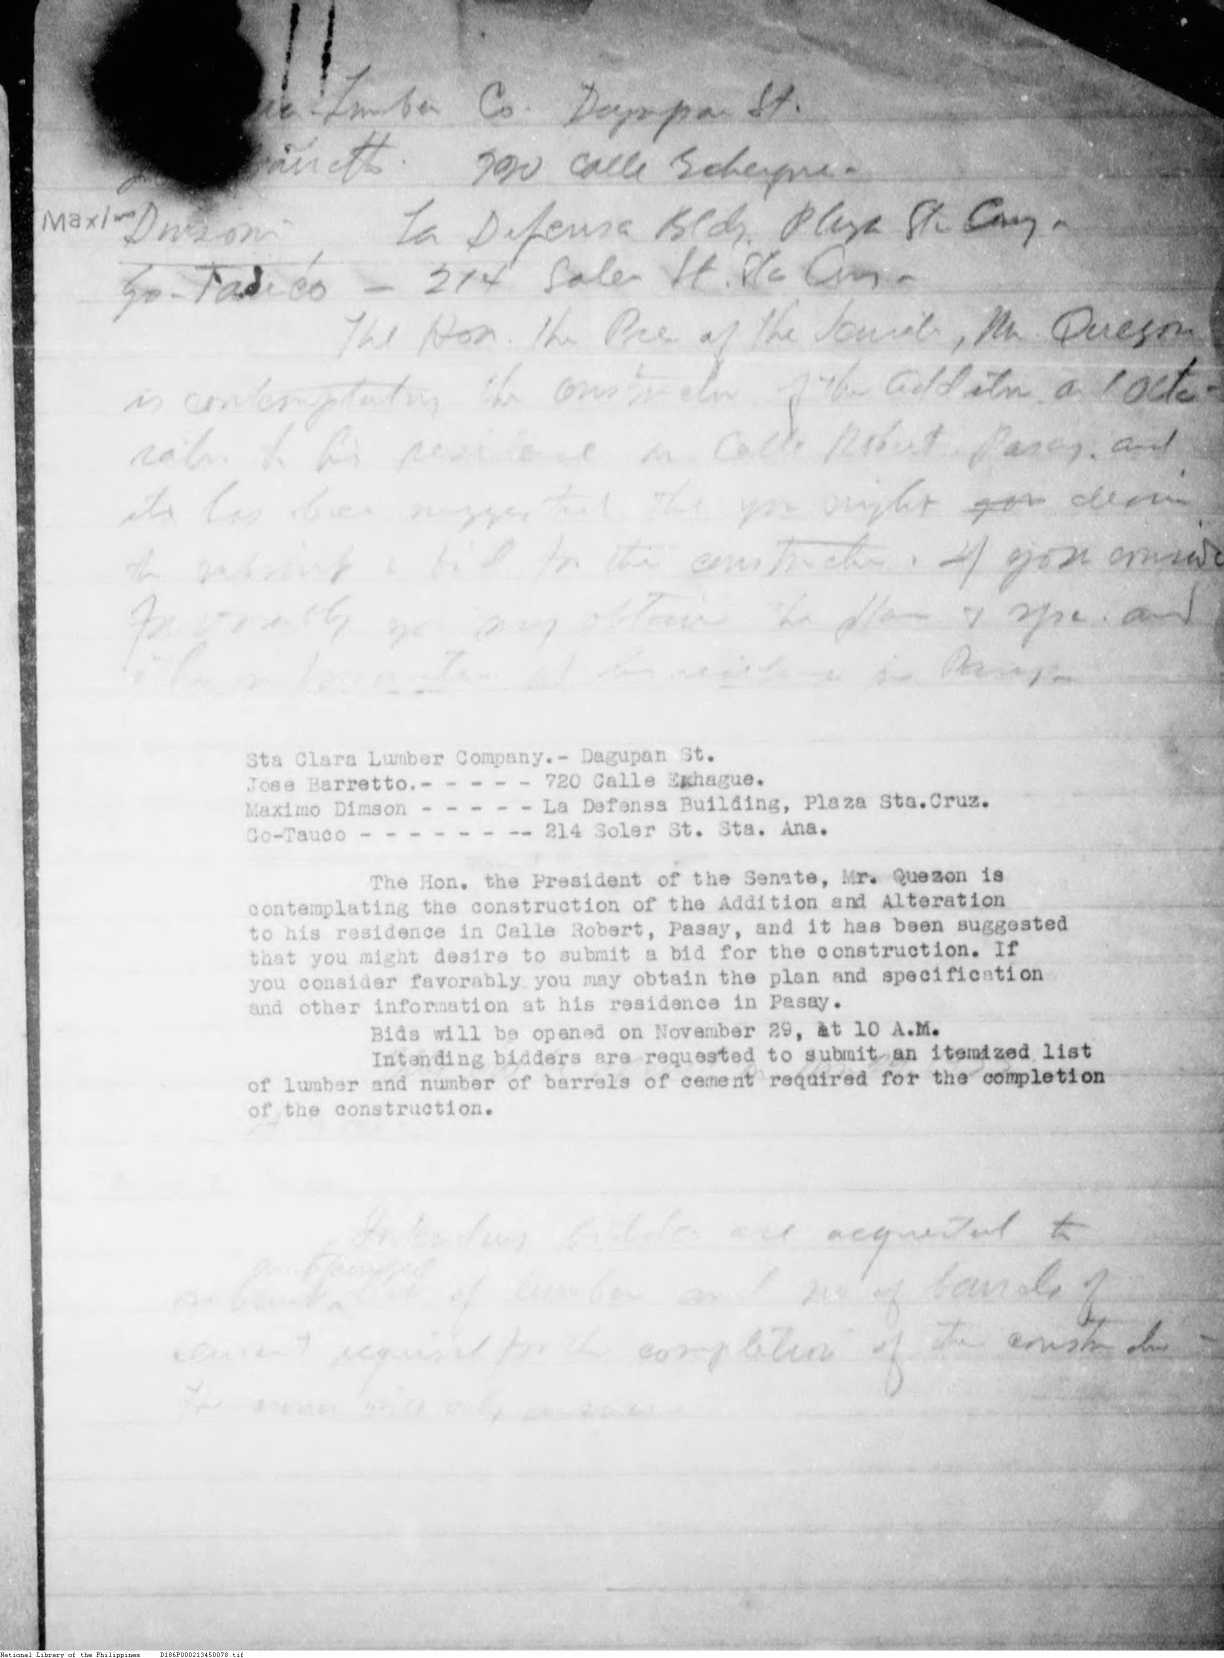 Lumber Co. Dagupan St.
720 Calle Echague.-
Maximo Dimson La Defensa Bldg. Plaza Sta Cruz.-
Go-Tauco - 214 Soler St. Sta Cruz.-
The Hon. the Pres of the Senate, Mr. Quezon
is contemplating the construction of the addition and alte-
ration to his residence in Calle Robert Pasay. and
it has been suggested that you might desire
to submit a bid for the construction. If you consider
favorably you may obtain the plan & spe. and
other information at his residence in Pasay.-
Sta Clara Lumber Company.- Dagupan St.
Jose Barretto.- - - - - - 720 Calle Exhague.
Maximo Dimson - - - - - La Defensa Building, Plaza Sta.Cruz.
Go-Tauco - - - - - - - -- 214 Soler St. Sta. Ana.
The Hon. the President of the Senate, Mr. Quezon is
contemplating the construction of the Addition and Alteration
to his residence in Calle Robert, Pasay, and it has been suggested
that you might desire to submit a bid for the construction. If
you consider favorably you may obtain the plan and specification
and other information at his residence in Pasay.
Bids will be opened on November 29, at 10 A.M.
Intending bidders are requested to submit an itemized list
of lumber and number of barrels of cement required for the completion
of the construction.
Intending bidders are requested to
submit an itemized list of lumber and no of barrels of
cement required for the completion of the construction -
National Library of the Philippines D186P000213450078.tif